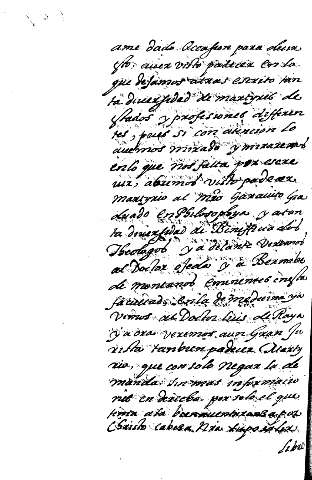 ame dado Occasion para decir
esto: aver visto padecer con lo
que dejamos atras escrito tan
ta diversidad de martyres de
estados y profesiones differen
tes, pues si con atencion lo
avemos mirado y miraremos
en lo que nos falta por escre
vir, abremos visto padecer
martyrio al Mro Garavito Gra
duado en Philosophya y a tan
ta diversidad de Beneficiados
Theologos y adelante veremos
al Doctor ojeda y a Bernabe
de montanos eminentes en esta
facultad, en la de medicina ya
vimos al Doctor Luis de Raya
y aora veremos a un Gran Ju
rista tambien padecer Marty
rio, que con solo negar la de
manda sin mas informacio
nes en derecho por solo el que
tenia a la bienaventuranza por
Christo cabeza Nra